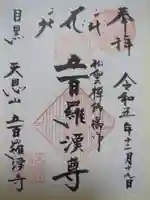 奉拝
令和五年十二月十九日
松雲禅師御作
五百羅漢尊
目黒
天恩山五百羅漢寺